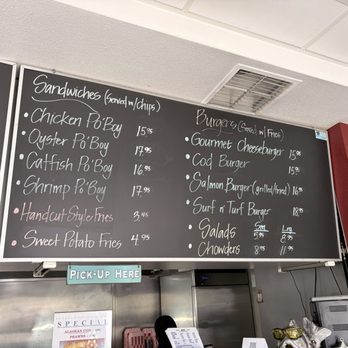 Sandwiches (Served w/chips)
Chicken Po'Boy 15.95
Oyster Po'Boy 17.95
Catfish Po'Boy 16.95
Shrimp Po'Boy 17.95
Handcut Style Fries 3.95
Sweet Potato Fries 4.95
Burgers (Served w/ Fries)
Gourmet Cheeseburger 15.95
Cod Burger 15.95
Salmon Burger (grilled/fried) 16.95
Surf n' Turf Burger 18.95
Sm Lrg
Salads 8.95
Chowders 8.95 11.95
PICK-UP HERE
SPECIAL
ALASKAN COD
PRAWNS